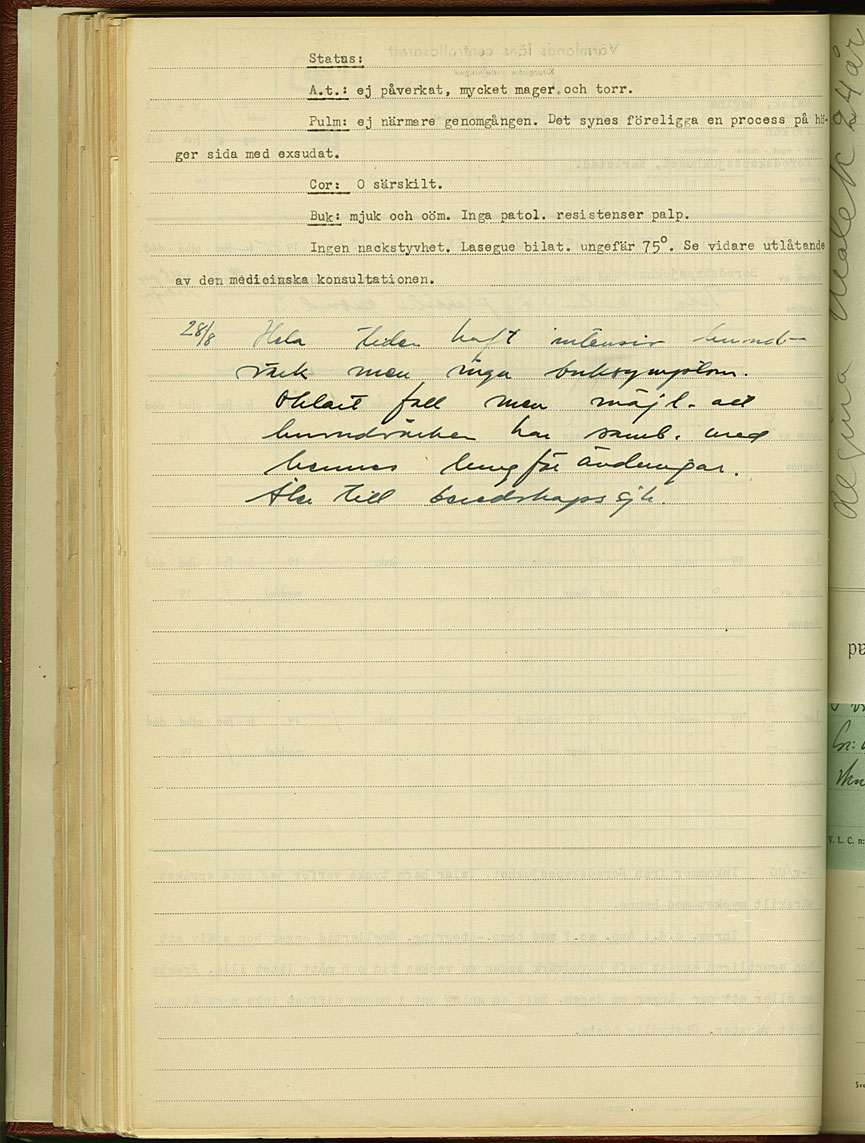 Status:
A.t.: ej påverkat, mycket mager och torr.
Pulm: ej närmare genomgången. Det synes föreligga en process på hö-
ger sida med exsudat.
Cor: O särskilt.
Buk: mjuk och oöm. Inga patol. resistenser palp.
Ingen nackstyvhet. Lasegue bilat. ungefär 75°. Se vidare utlåtande
av den medicinska konsultationen.
28/8 Hela tiden haft intensiv huvud-
värk men inga buksymptom.
Oklart fall men möjl. att
huvudvärken har samb. med
hennes lungförändringar.
Åter till beredskapssjh.
24 år
V. L. C. n: